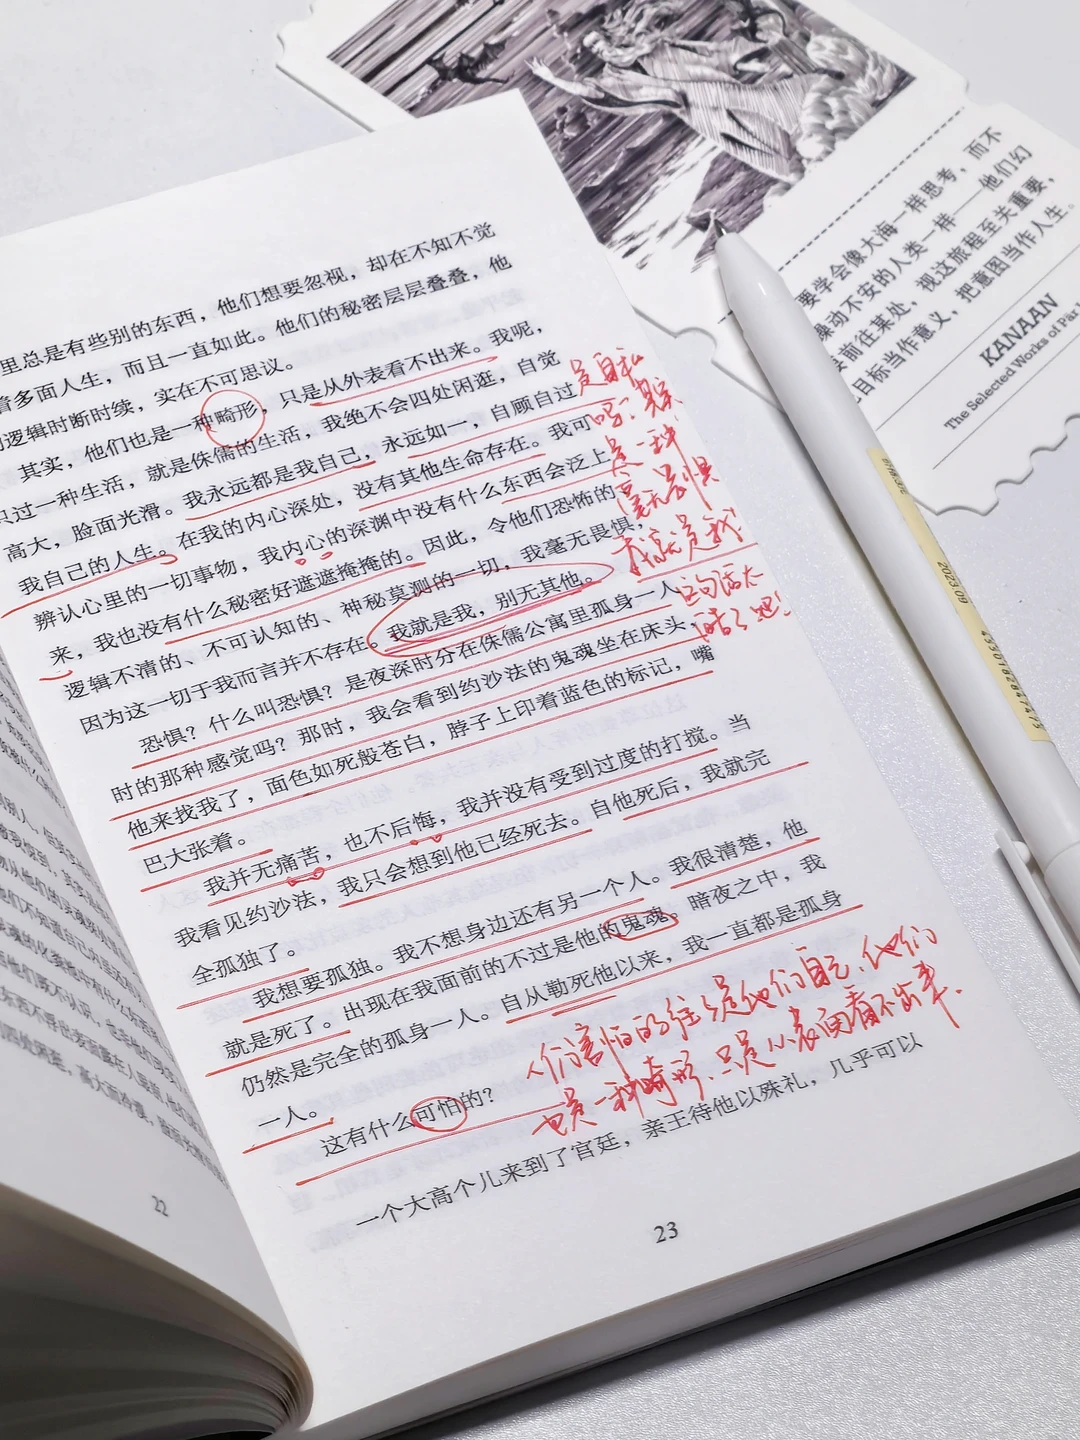 里总是有些别的东西，他们想要忽视，却在不知不觉
着多面人生，而且一直如此。他们的秘密层层叠叠，他
逻辑时断时续，实在不可思议。
其实，他们也是一种畸形，只是从外表看不出来。我呢，
只过一种生活，就是侏儒的生活，我绝不会四处闲逛，自觉
高大，脸面光滑。我永远都是我自己，永远如一，自顾自过
我自己的人生。在我的内心深处，没有其他生命存在。我可
辨认心里的一切事物，我内心的深渊中没有什么东西会泛上
来，我也没有什么秘密好遮遮掩掩的。因此，令他们恐怖的、
逻辑不清的、不可认知的、神秘莫测的一切，我毫无畏惧，
因为这一切于我而言并不存在。我就是我，别无其他。
恐惧？什么叫恐惧？是夜深时分在侏儒公寓里孤身一人
时的那种感觉吗？那时，我会看到约沙法的鬼魂坐在床头，
他来找我了，面色如死般苍白，脖子上印着蓝色的标记，嘴
巴大张着。
我并无痛苦，也不后悔，我并没有受到过度的打搅。当
我看见约沙法，我只会想到他已经死去。自他死后，我就完
全孤独了。
我想要孤独。我不想身边还有另一个人。我很清楚，他
就是死了。出现在我面前的不过是他的鬼魂。暗夜之中，我
仍然是完全的孤身一人。自从勒死他以来，我一直都是孤身
一人。
这有什么可怕的？
一个大高个儿来到了宫廷，亲王待他以殊礼，几乎可以
23
22
是自私
吗？
是一种
我就是我
这句话太
酷了吧！
人们害怕的往往是他们自己，他们
也是一种畸形，只是从表面看不出来。
要学会像大海一样思考，而不
躁动不安的人类一样——他们幻
要前往某处，视这旅程至关重要，
目标当作意义，把意图当作人生。
KANAAN
The Selected Works of Pär
2023.09